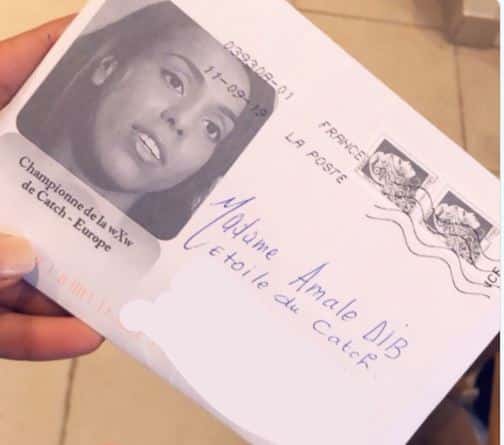 Championne de la wXw
de Catch - Europe
03930A-01
11-09-19
FRANCE
LA POSTE
Madame Amale DIB
Etoile du Catch